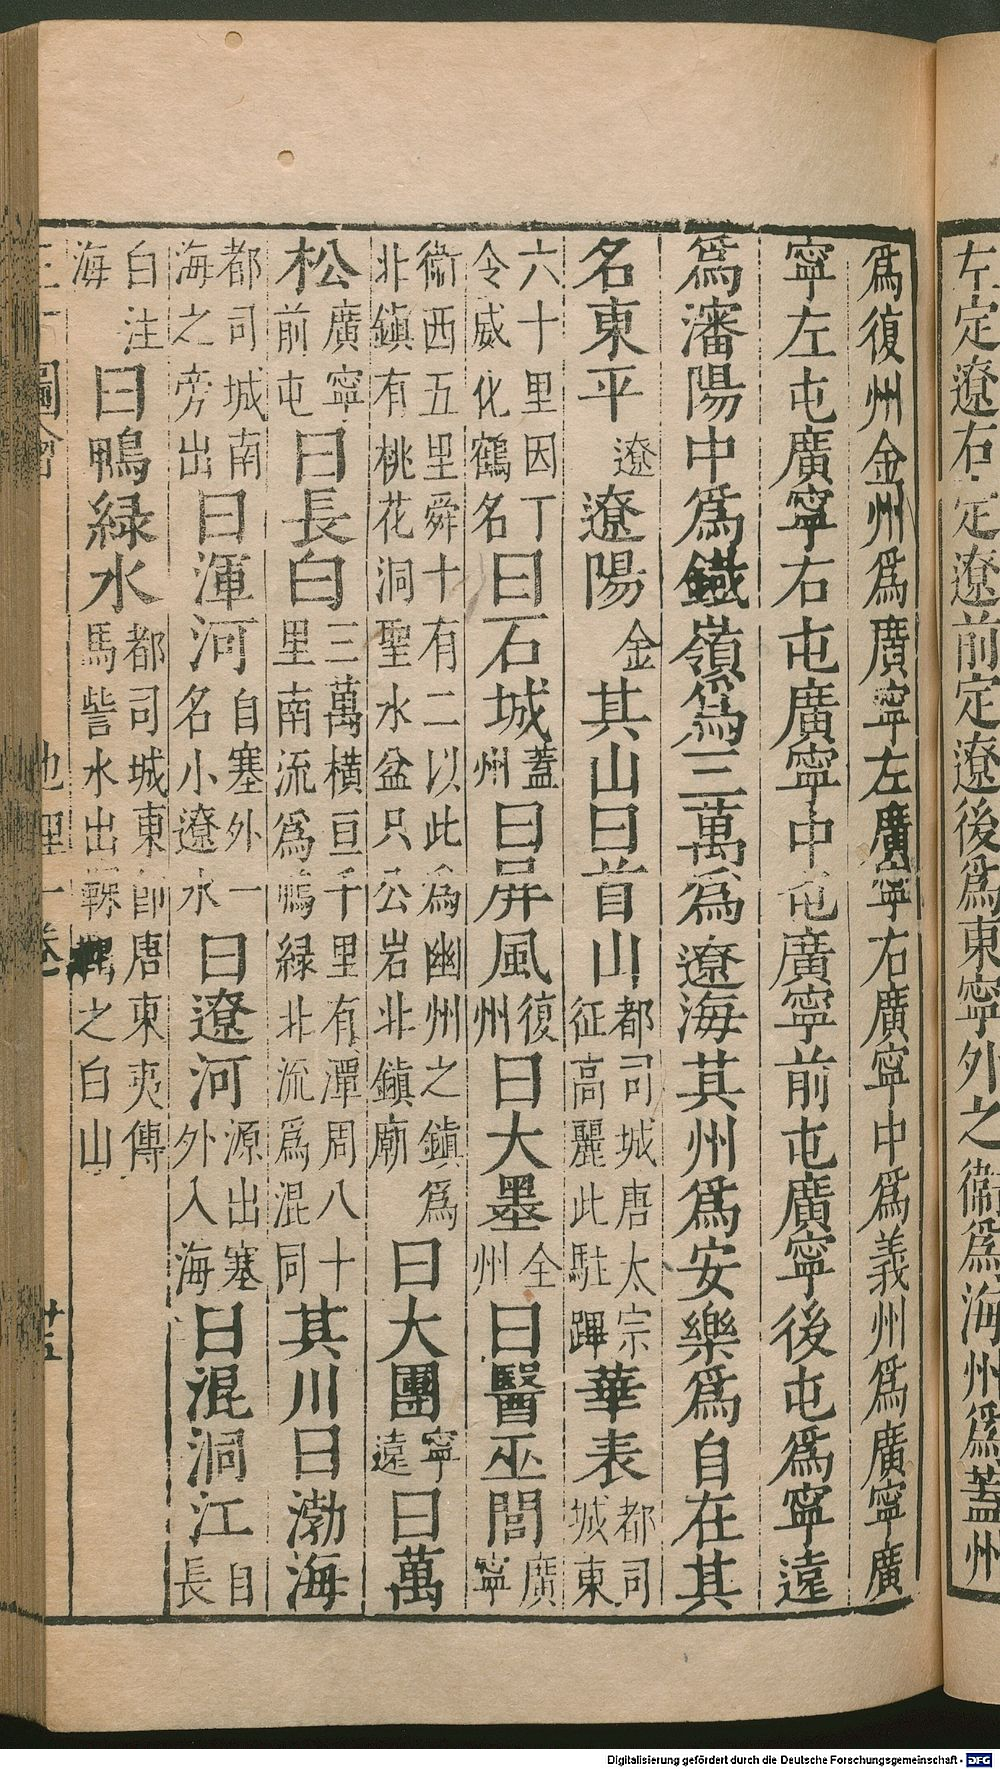 左定遼右定遼前定遼後爲東寧外之衞爲海州爲蓋州
爲復州金州爲廣寧左廣寧右廣寧中爲義州爲廣寧廣
寧左屯廣寧右屯廣寧中屯廣寧前屯廣寧後屯爲寧遠
爲瀋陽中爲鐵嶺爲三萬爲遼海其州爲安樂爲自在其
名東平遼遼陽金其山曰首山都司城唐太宗征高麗此駐蹕華表都司城東
六十里因丁令威化鶴名曰石城蓋州曰屏風復州曰大墨全州曰醫巫閭廣寧
衞西五里舜十有二以此爲幽州之鎮爲北鎮有桃花洞聖水盆只公岩北鎮廟曰大團寧遠曰萬
松廣寧前屯曰長白三萬橫亘千里有潭周八十里南流爲鴨緑北流爲混同其川曰渤海
都司城南海之旁出曰渾河自塞外一名小遼水曰遼河源出塞外入海曰混洞江自長
白注海曰鴨緑水都司城東卽唐東夷傳馬訾水出靺鞨之白山
三才圖會 地理一卷 廿五
Digitalisierung gefördert durch die Deutsche Forschungsgemeinschaft - DFG